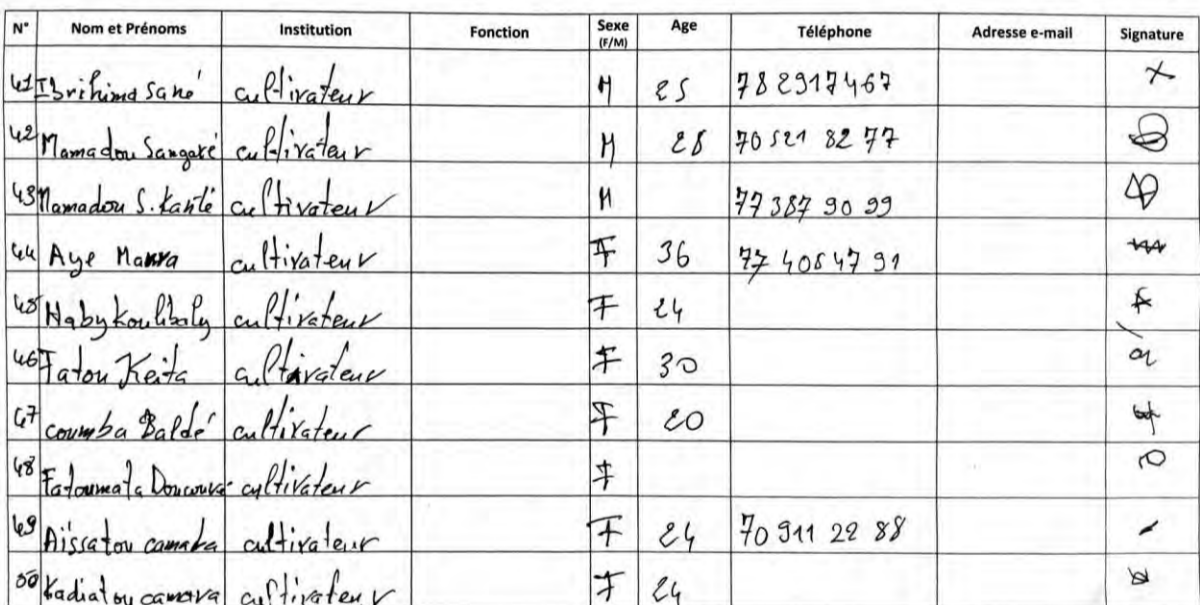 N° Nom et Prénoms Institution Fonction Sexe (F/M) Age Téléphone Adresse e-mail Signature
41 Ibrihima Sané cultivateur M 25 78 2917467
42 Mamadou Sangaré cultivateur M 28 70 521 82 77
43 Mamadou S. Kanté cultivateur M 77 387 90 99
44 Aye cultivateur F 36 77 408 47 91
45 Naby koulibaly cultivateur F 24
46 Fatou Keita cultivateur F 30
47 coumba Baldé cultivateur F 20
48 Fatoumata Doucouré cultivateur F
49 Aïssatou camara cultivateur F 24 70 911 22 88
50 Kadiatou camara cultivateur F 24